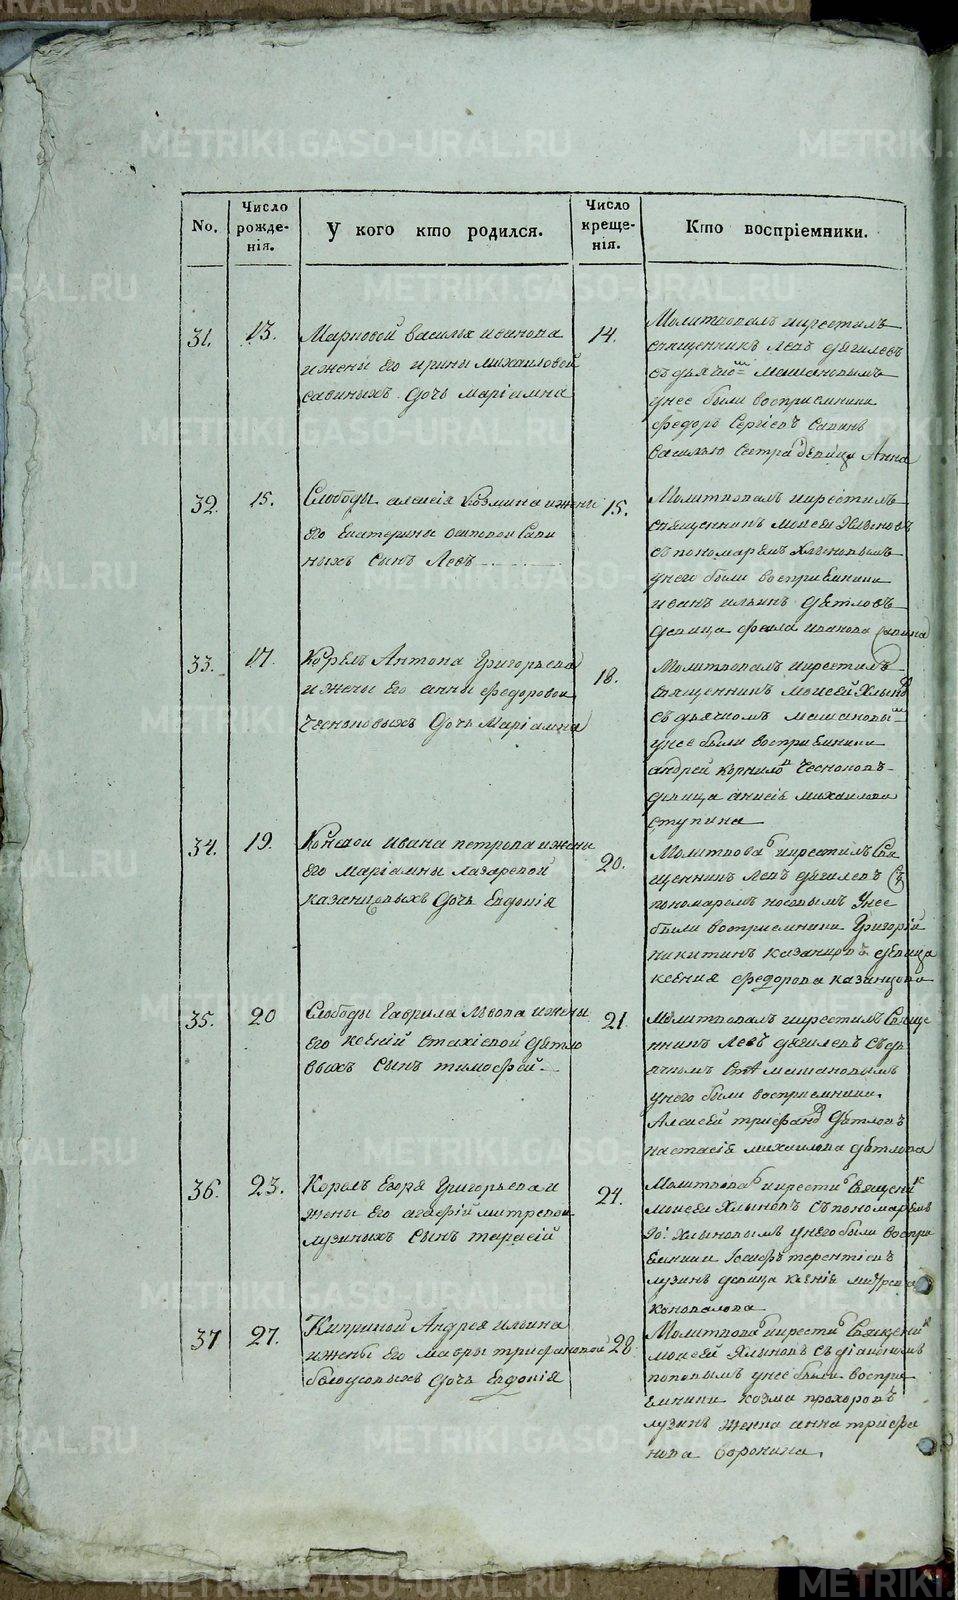 METRIKI.GASO-URAL.RU
No.
Число рожде-нія.
У кого кто родился.
Число креще-нія.
Кто воспріемники.
31.
13.
Марковой василья иванова
и жены его ирины михаиловой
савиныхъ дочь маріамна
14.
Молитвовалъ и крестилъ
священникъ Левъ дягилевъ
съ дьячко^м машановымъ
у нее были восприемники
федоръ Сергіевъ Савинъ
василью сестра девица Анна
32.
15.
Слободы алексія козмина и жены
его Екатерины осиповой Сави
ныхъ сынъ Левъ
15.
Молитвовалъ и крестилъ
священникъ моисей Хлыновъ
съ пономаремъ Хлыновымъ
у него были восприемники
иванъ ильинъ дѣтловъ
девица фекла иванова савина
33.
17.
Корелъ Антона Григорьева
и жены его анны федоровой
Чесноковыхъ дочь Маріамна
18.
Молитвовалъ и крестилъ
священникъ моисей Хлыно^в
съ дьячкомъ машановы^м
у нее были восприемники
андрей корнило^в Чесноковъ
девица анисія михаилова
ступина
34.
19.
ивана петрова и жены
его маріамны лазаревой
казанцовыхъ дочь Евдокія
20.
Молитвова^л и крестилъ Свя
щенникъ Левъ дягилевъ съ
пономаремъ носовымъ у нее
были восприемники Григорій
никитинъ казанцовъ девица
ксения федорова казанцова
35.
20
Слободы гаврила львова и жены
его ксеній евстахіевой дѣтло
выхъ сынъ тимофей
21.
Молитвовалъ и крестилъ Свяще
нникъ Левъ дягилевъ съ дь
ячкомъ машановымъ
у него были восприемники.
Алексей трифано^в Дѣтловъ
настасія михаилова дѣтлова
36.
23.
Корелъ Егора Григорьева и
жены его агафій митревой
лузиныхъ сынъ тарасій
24.
Молитвова^л и крести^л Священи^к
моисей Хлыновъ съ пономаремъ
Хлыновымъ у него были воспри
емники Іосифъ терентіевъ
лузинъ девица ксенія митрева
коновалова
37
27.
Киприной Андрея ильина
и жены его мавры трифановой
белоусовыхъ дочь Евдокія
28
Молитвова^л и крести^л Священи^к
моисей Хлыновъ съ
поповымъ у нее были воспри
емники козма прохоровъ
лузинъ женка анна трифа
нова воронина.